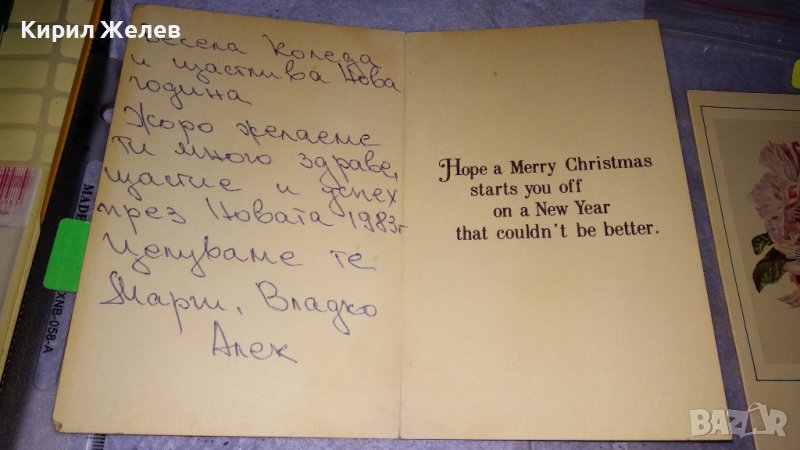 Кирил Желев
Весела Коледа
и щастлива Нова
година
Жоро желаеме
ти много здраве,
щастие и успех
през Новата 1983г
Целуваме те
Марги, Владко
Алек
Hope a Merry Christmas
starts you off
on a New Year
that couldn't be better.
MADE
XNB-058-A
BAZAR